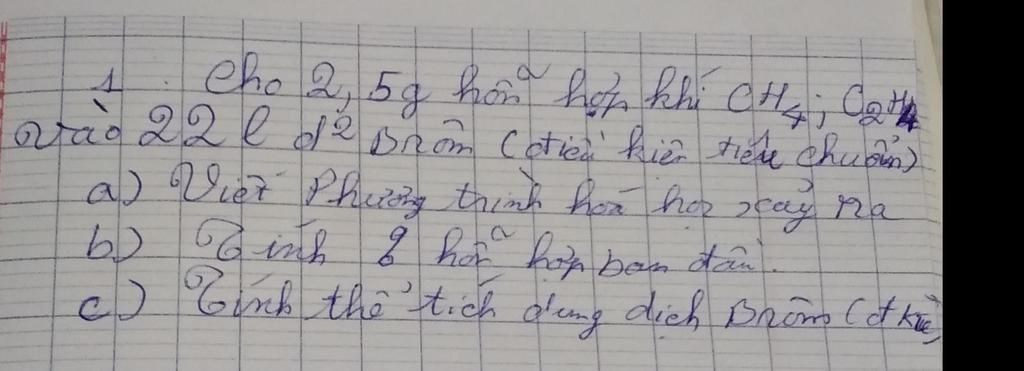 1. Cho 2,5g hỗn hợp khí CH4; C2H4
vào 22l d² Brôm (điều kiện tiêu chuẩn)
a) Viết Phương trình hoá học xảy ra
b) Tính % hỗn hợp ban đầu.
c) Tính thể tích dung dịch Brôm (đktc